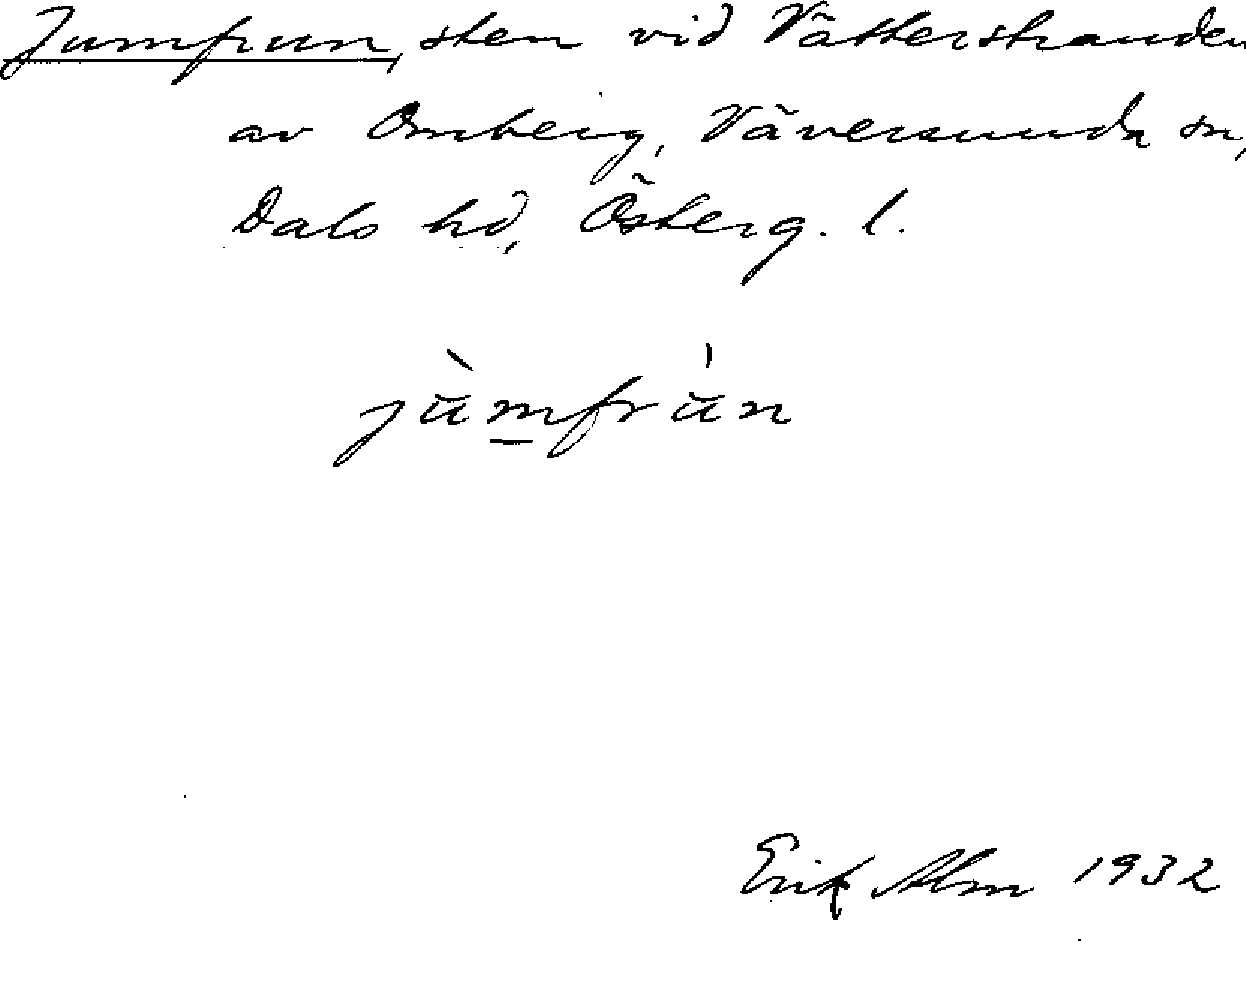 Jumfrun, sten vid Vätterstranden
av Omberg, Väversunda sn,
Dals hd, Österg. l.
jùmfrún
Erik Alm 1932